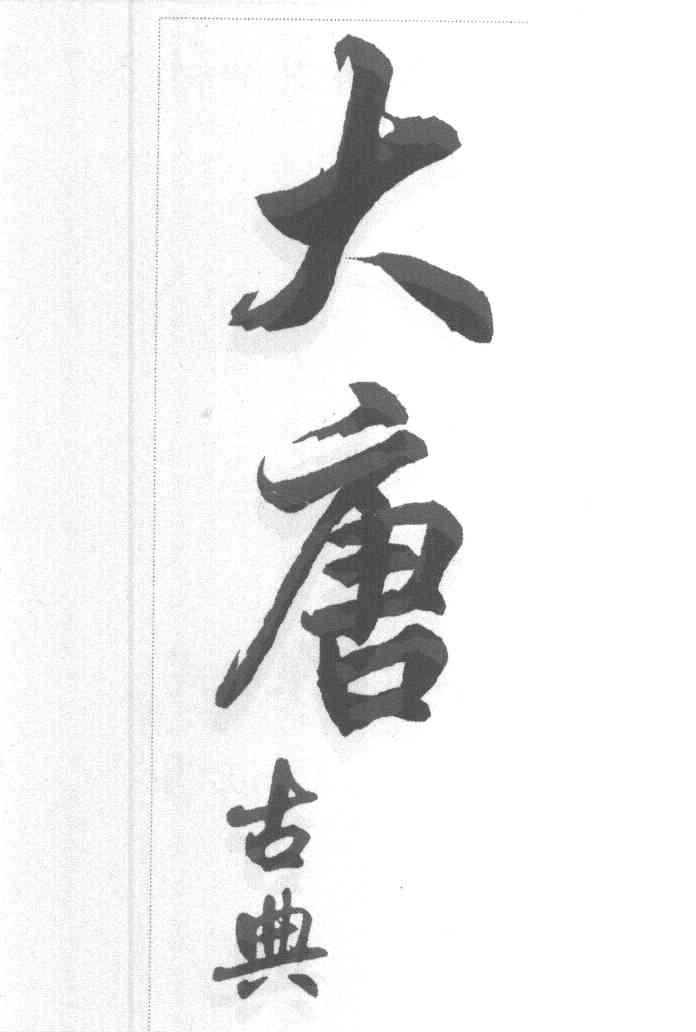 大唐
古典